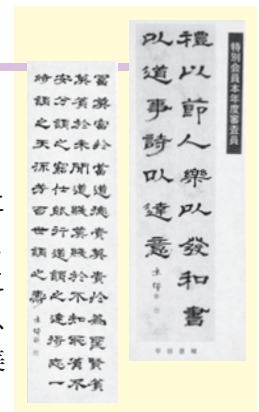 特別会員本年度審査員
禮以節人樂以發和書
以道事詩以達意
富莫富於蓄道德貴莫貴於為聖賢貧
莫貧於未聞道賤莫賤於不知恥貧不
安分謂之窮仕能行道謂之達得志一
時謂之夭流芳百世謂之壽